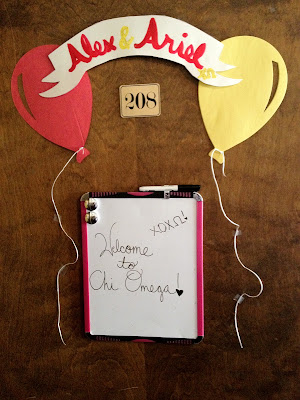 Alex & Ariel
208
XOXΩ!
Welcome
to
Chi Omega!